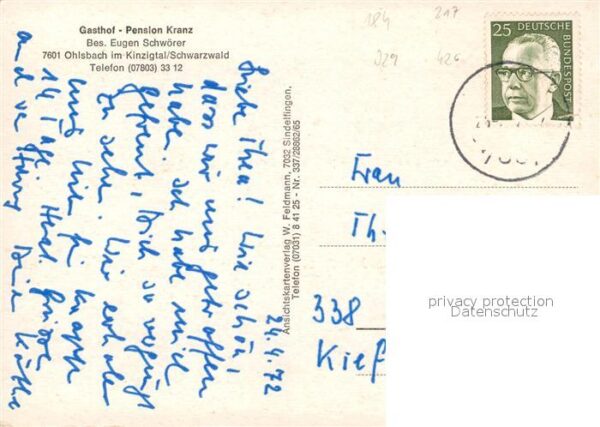 184 217
929 426
Gasthof - Pension Kranz
Bes. Eugen Schwörer
7601 Ohlsbach im Kinzigtal/Schwarzwald
Telefon (07803) 33 12
25 DEUTSCHE BUNDESPOST
24.4.72
Liebe Thea! Wie schön,
dass wir uns getroffen
haben. Ich habe mich
gefreut, Dich so vergnügt
zu sehen. Wir erholen
uns hier für knappe
14 Tage. Herzl. Grüsse
Deine Käthe
Ansichtskartenverlag W. Feldmann, 7032 Sindelfingen,
Telefon (07031) 8 41 25 - Nr. 337/28662/65
Frau
Th.
338
privacy protection
Datenschutz